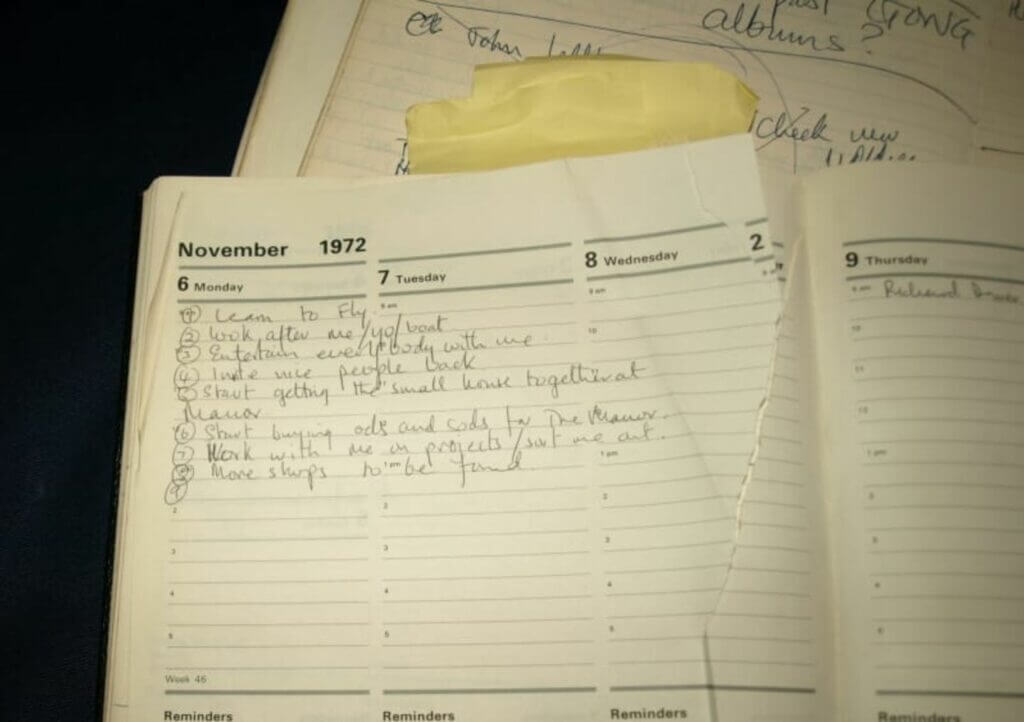 past GONG
albums?
John
Check new
November 1972
2
6 Monday
7 Tuesday
8 Wednesday
9 Thursday
9 am
9 am
9 am
Richard
① Learn to Fly
② Look after me/yo/boat
10
10
③ Entertain everybody with me
④ Invite nice people back
11
⑤ Start getting the small house together at
Manor
12
⑥ Start buying ods and sods for The Manor.
⑦ Work with me on projects/sort me out.
1 pm
1 pm
⑧ More shops to be found.
⑨
2
2
2
3
3
3
4
4
4
5
5
Week 46
Reminders
Reminders
Reminders
Reminders